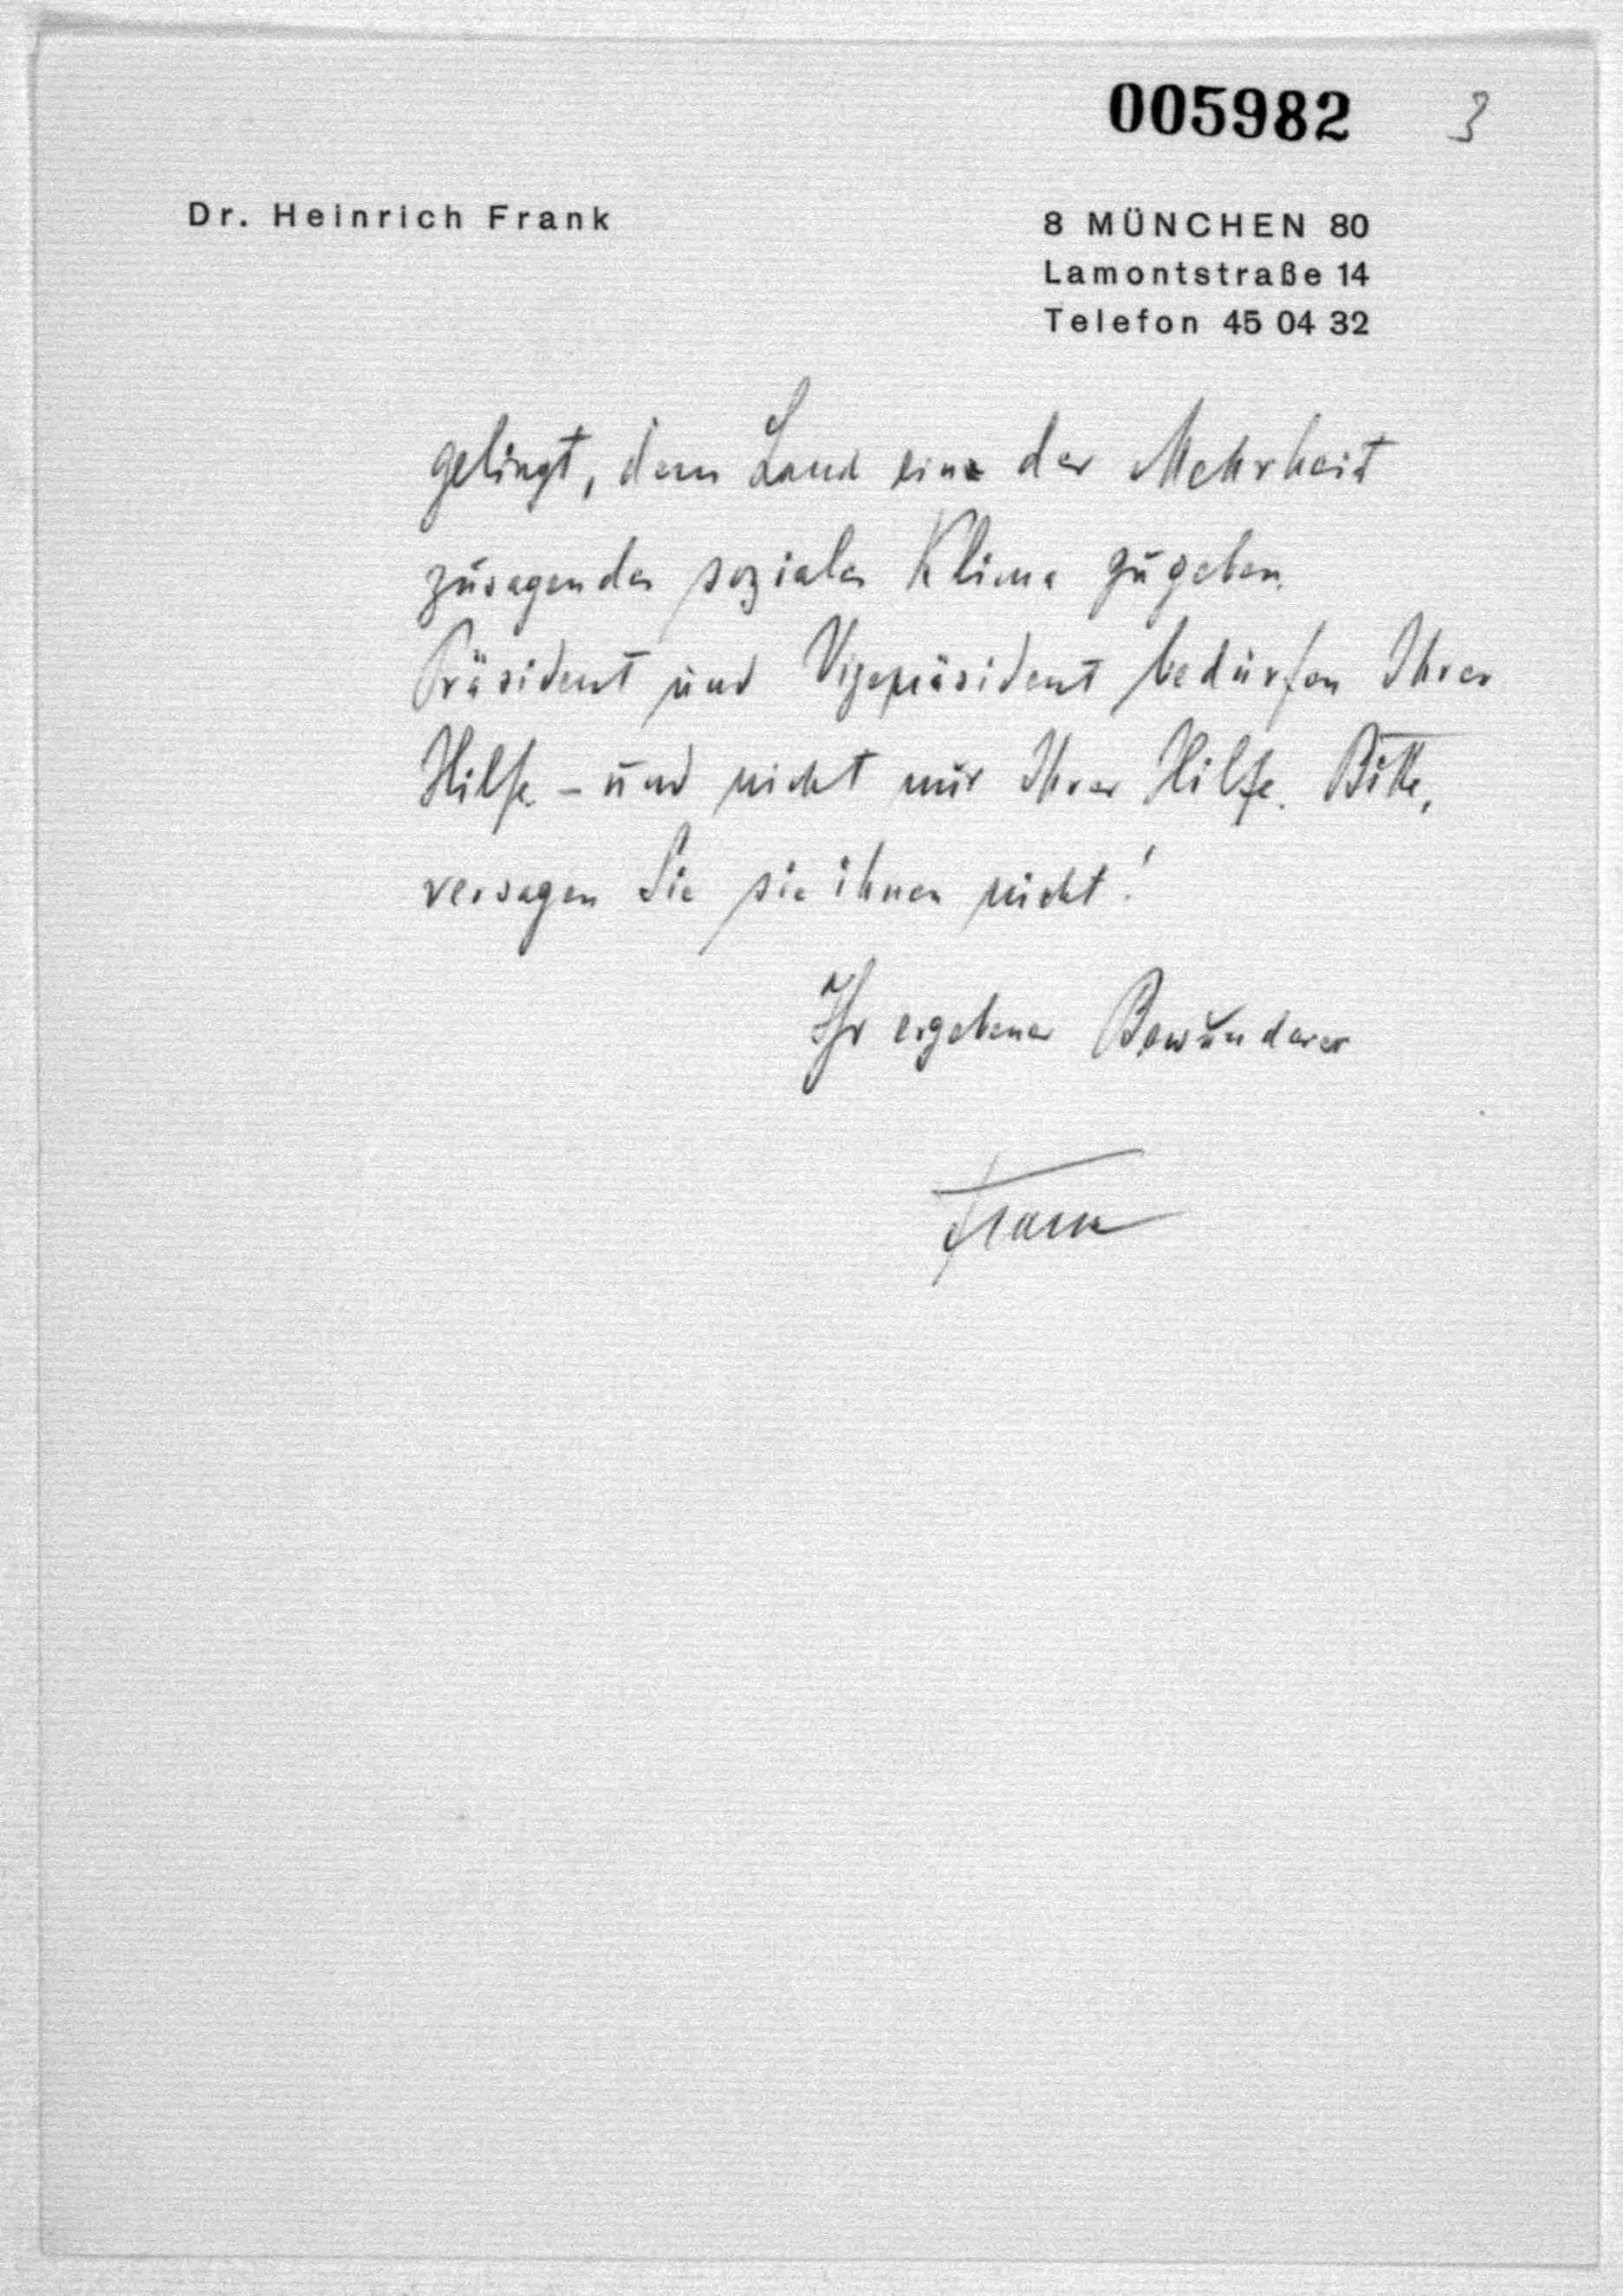 005982 3
Dr. Heinrich Frank
8 MÜNCHEN 80
Lamontstraße 14
Telefon 45 04 32
gelingt, dem Land eine der Mehrheit
zusagendes soziales Klima zu geben.
Präsident und Vizepräsident bedürfen Ihrer
Hilfe – und nicht nur Ihrer Hilfe. Bitte,
versagen Sie sie ihnen nicht!
Ihr ergebener Bewunderer
Frank